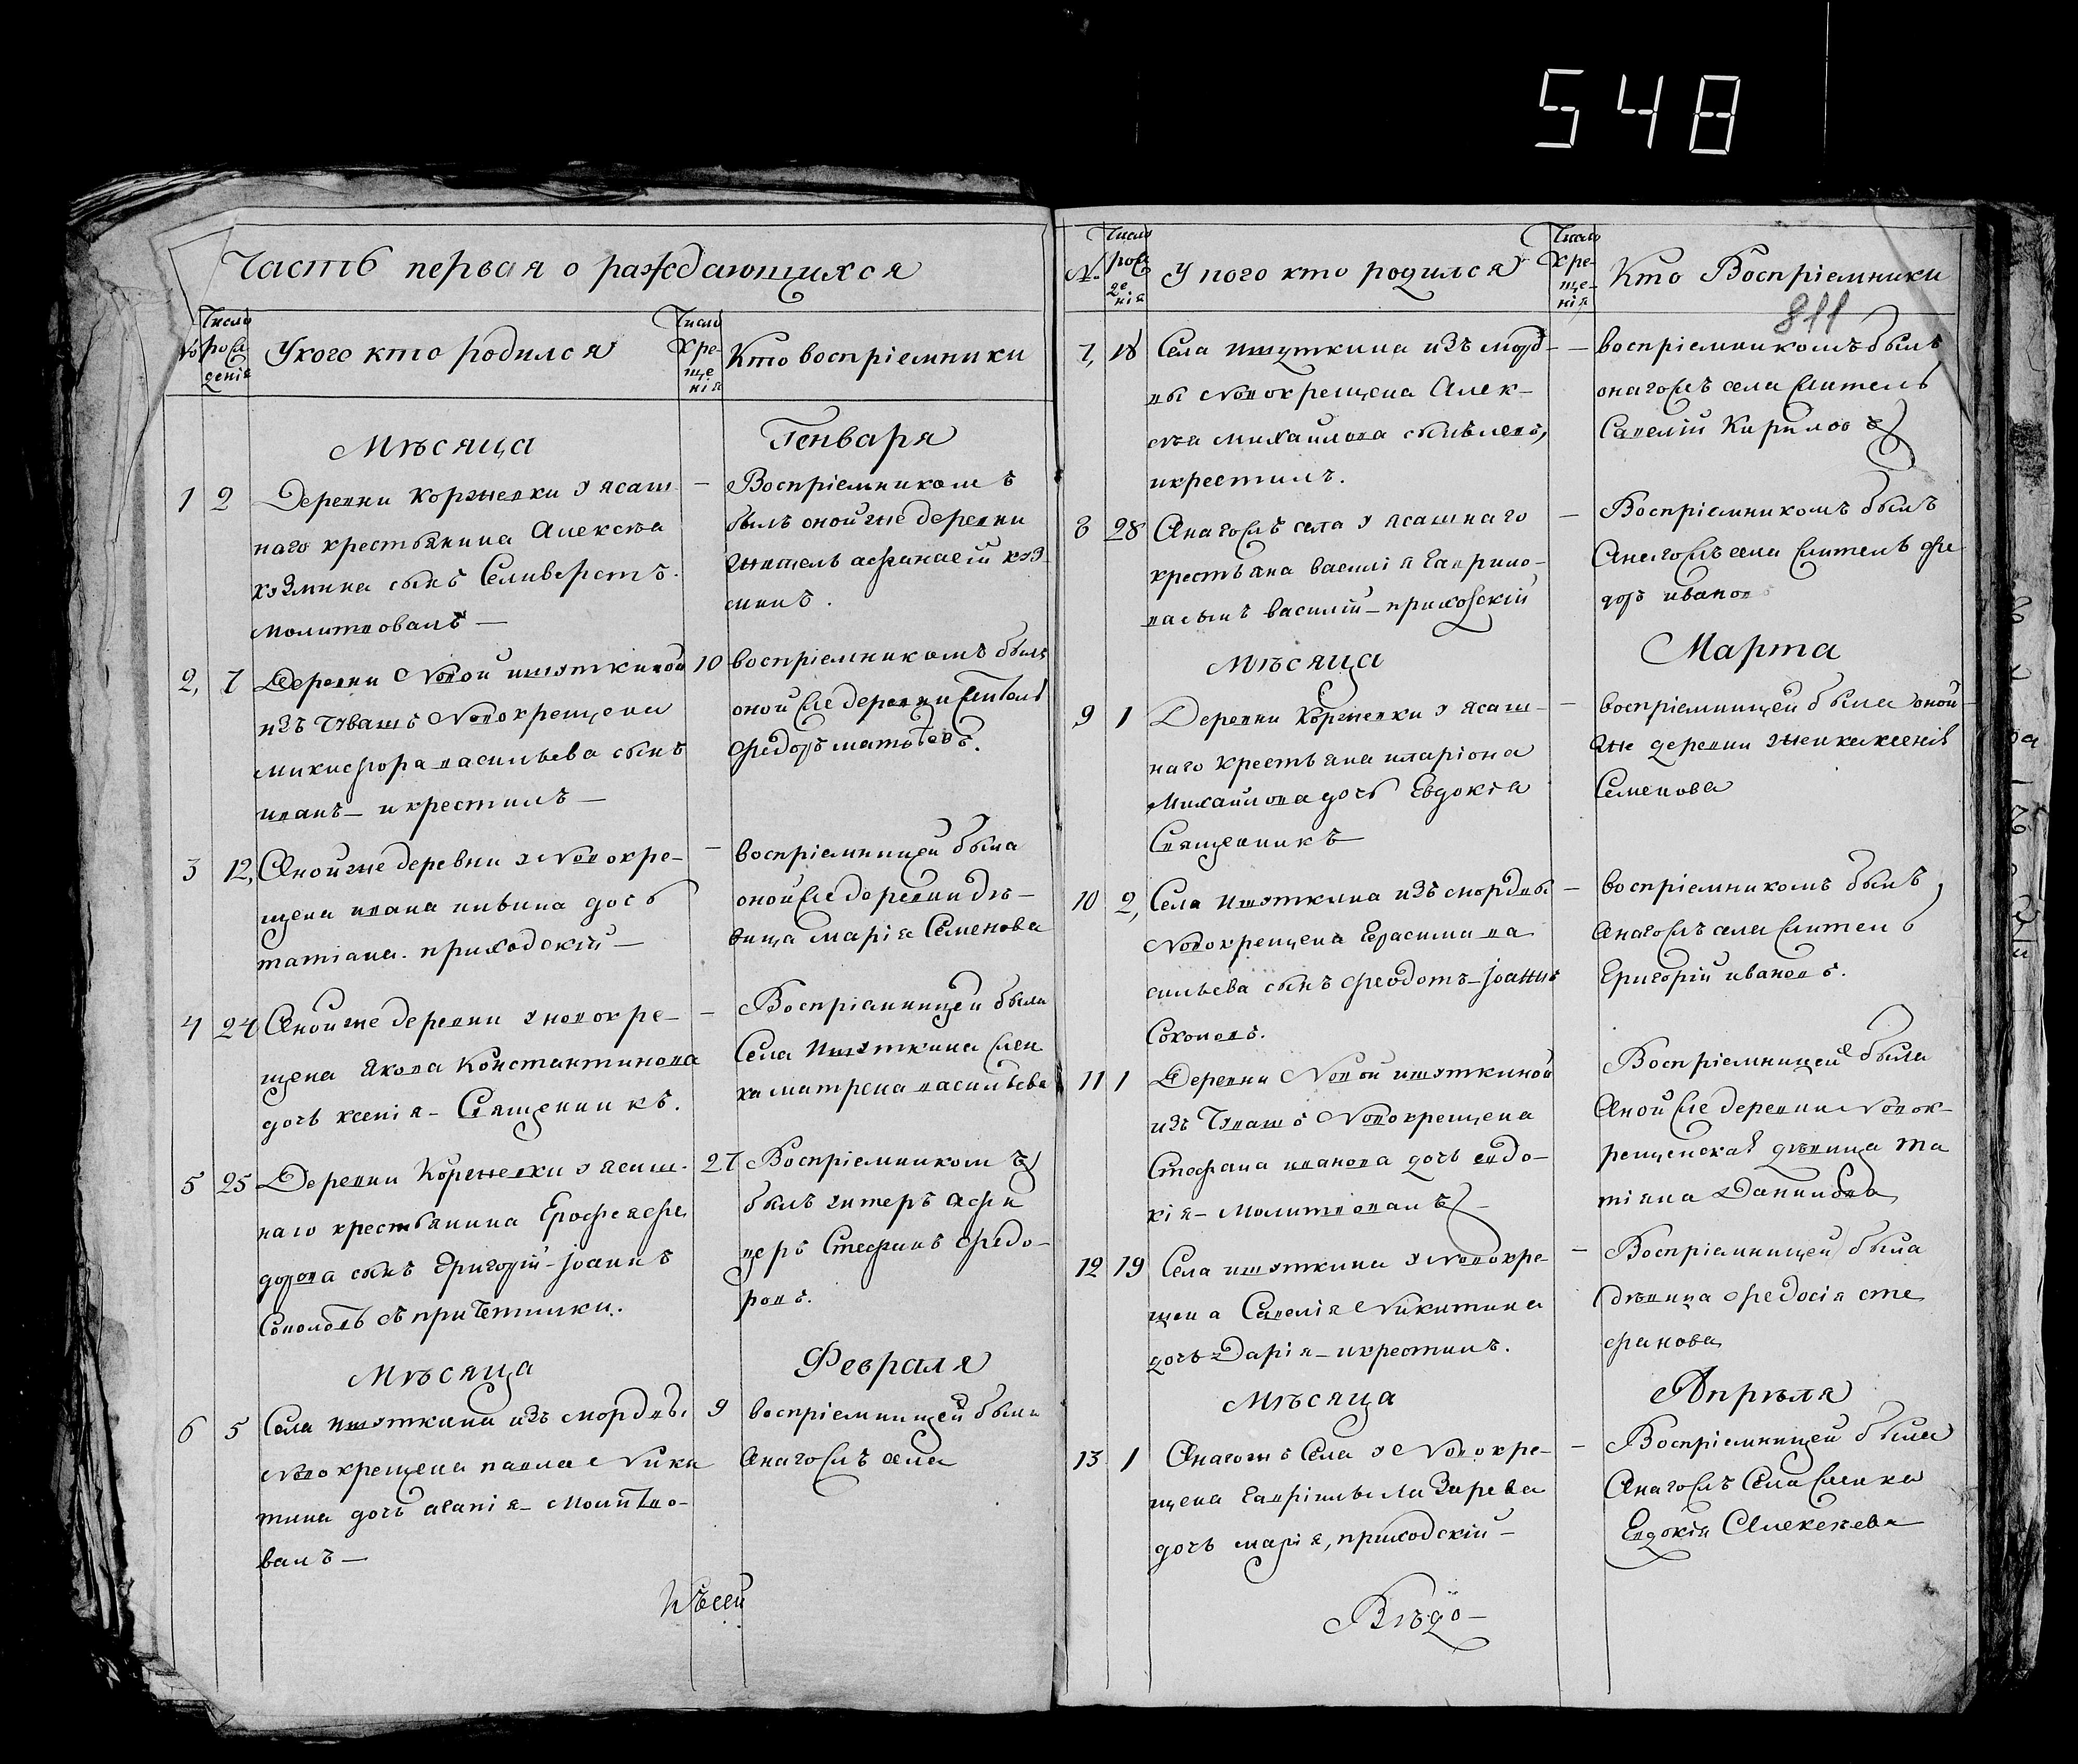 548
Часть первая о раждающихся
№ Число рождения У кого кто родился Число крещенія Кто воспріемники
Мѣсяца Генваря
1 2 Деревни Корженки у ясаш-
наго крестьянина Алексѣа
кузмина сынъ Селиверстъ.
молитвовалъ —
— Воспріемникомъ
былъ оной же деревни
житель афанасей куз
минъ.
2, 7 Деревни Новой ишуткиной
изъ Чувашъ Новокрещена
микифора васильева сынъ
иванъ — и крестилъ —
10 воспріемникомъ былъ
оной же деревни житель
Федоръ матвѣевъ.
3 12, Аной же деревни у Новокре-
щена ивана
дочь
татіана. приходскій —
— воспріемницей была
оной же деревни дѣ-
вица марія Семенова
4 24 Аной же деревни у новокре-
щена якова Константинова
дочь ксенія — Священникъ.
— Воспріемницей была
Села Ишуткина жен
ка матрена васильева
5 25 Деревни Корженки у ясаш-
наго крестьянина Ерофея фе
дорова сынъ Григорій — Іоаннъ
Соколовъ съ причетники.
27 Воспріемникомъ
былъ унтеръ афи
церъ Стефанъ Федо-
ровъ.
Мѣсяца Февраля
6 5 Села Ишуткина изъ мордвы
Новокрещена павла Ники
тина дочь агапія — Молитво-
валъ —
9 воспріемницей была
Анагожъ села
811
№ Число рожденія У кого кто родился Число крещенія Кто Воспріемники
7, 18 Села Ишуткина изъ морд-
вы Новокрещена Алек-
сѣя михаилова сынъ левъ,
и крестилъ.
— воспріемникомъ былъ
онагожъ села житель
Савелій Кириловъ
8 28 Анагожъ села у ясашнаго
крестьяна василія Гаврило-
ва сынъ василій — приходскій
— Воспріемникомъ былъ
Анагожъ села житель фе
доръ ивановъ
Мѣсяца Марта
9 1 Деревни Корженки у ясаш-
наго крестьяна иларіона
Михаилова дочь Евдокіа
Священникъ —
— воспріемницей была оной
же деревни женка ксенія
Семенова
10 2, Села Ишуткина изъ мордвы
Новокрещена Герасима ва
сильева сынъ феодотъ — Іоаннъ
Соколовъ.
— воспріемникомъ былъ,
Анагожъ села житель
Григорій ивановъ.
11 1 Деревни Новой ишуткиной
изъ Чувашъ Новокрещена
Стефана иванова дочь евдо-
кія — Молитвовалъ —
Воспріемницей была
Аной же деревни Новок-
рещенская дѣвица Та
тіяна Данилова
12 19 Села ишуткина у Новокре-
щена Савелія Никитина
дочь Дарія — и крестилъ.
— Воспріемницей была
дѣвица федосія сте
фанова
Мѣсяца Апрѣля
13 1 Анагожъ Села у Новокре-
щена Гавріила Лазарева
дочь марія, приходскій —
— Воспріемницей была
Анагожъ Села женка
Евдокія Алексѣева
Къ сей
Вѣдо-